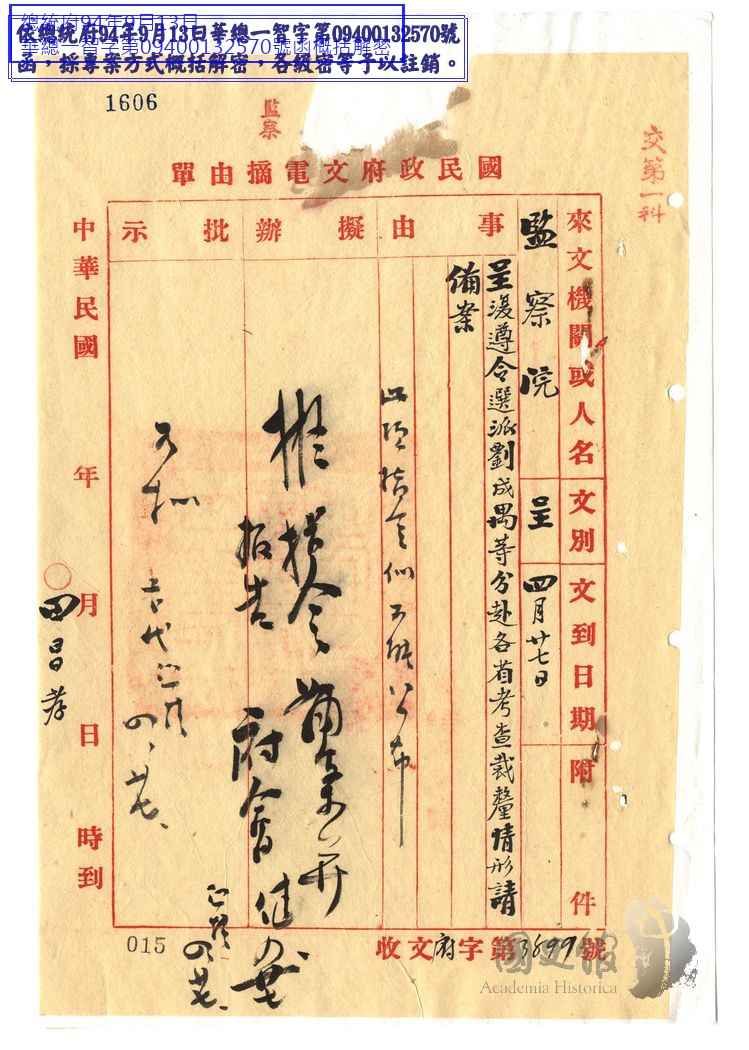 總統府94年9月13日
華總一智字第09400132570號函概括解密
依總統府94年9月13日華總一智字第09400132570號
函，採專案方式概括解密，各級密等予以註銷。
1606
監察
交第一科
國民政府文電摘由單
來文機關或人名
文別
文到日期
附件
監察院
呈
四月廿七日
事由
擬辦
批示
呈復遵令選派劉成禺等分赴各省考查裁釐情形請
備案
此項指令似不必公布
擬指令備案并
報告
府會
四、廿七、
中華民國 年 月 日 時到
田昌孝
015
收文府字第3899號
國史館
Academia Historica